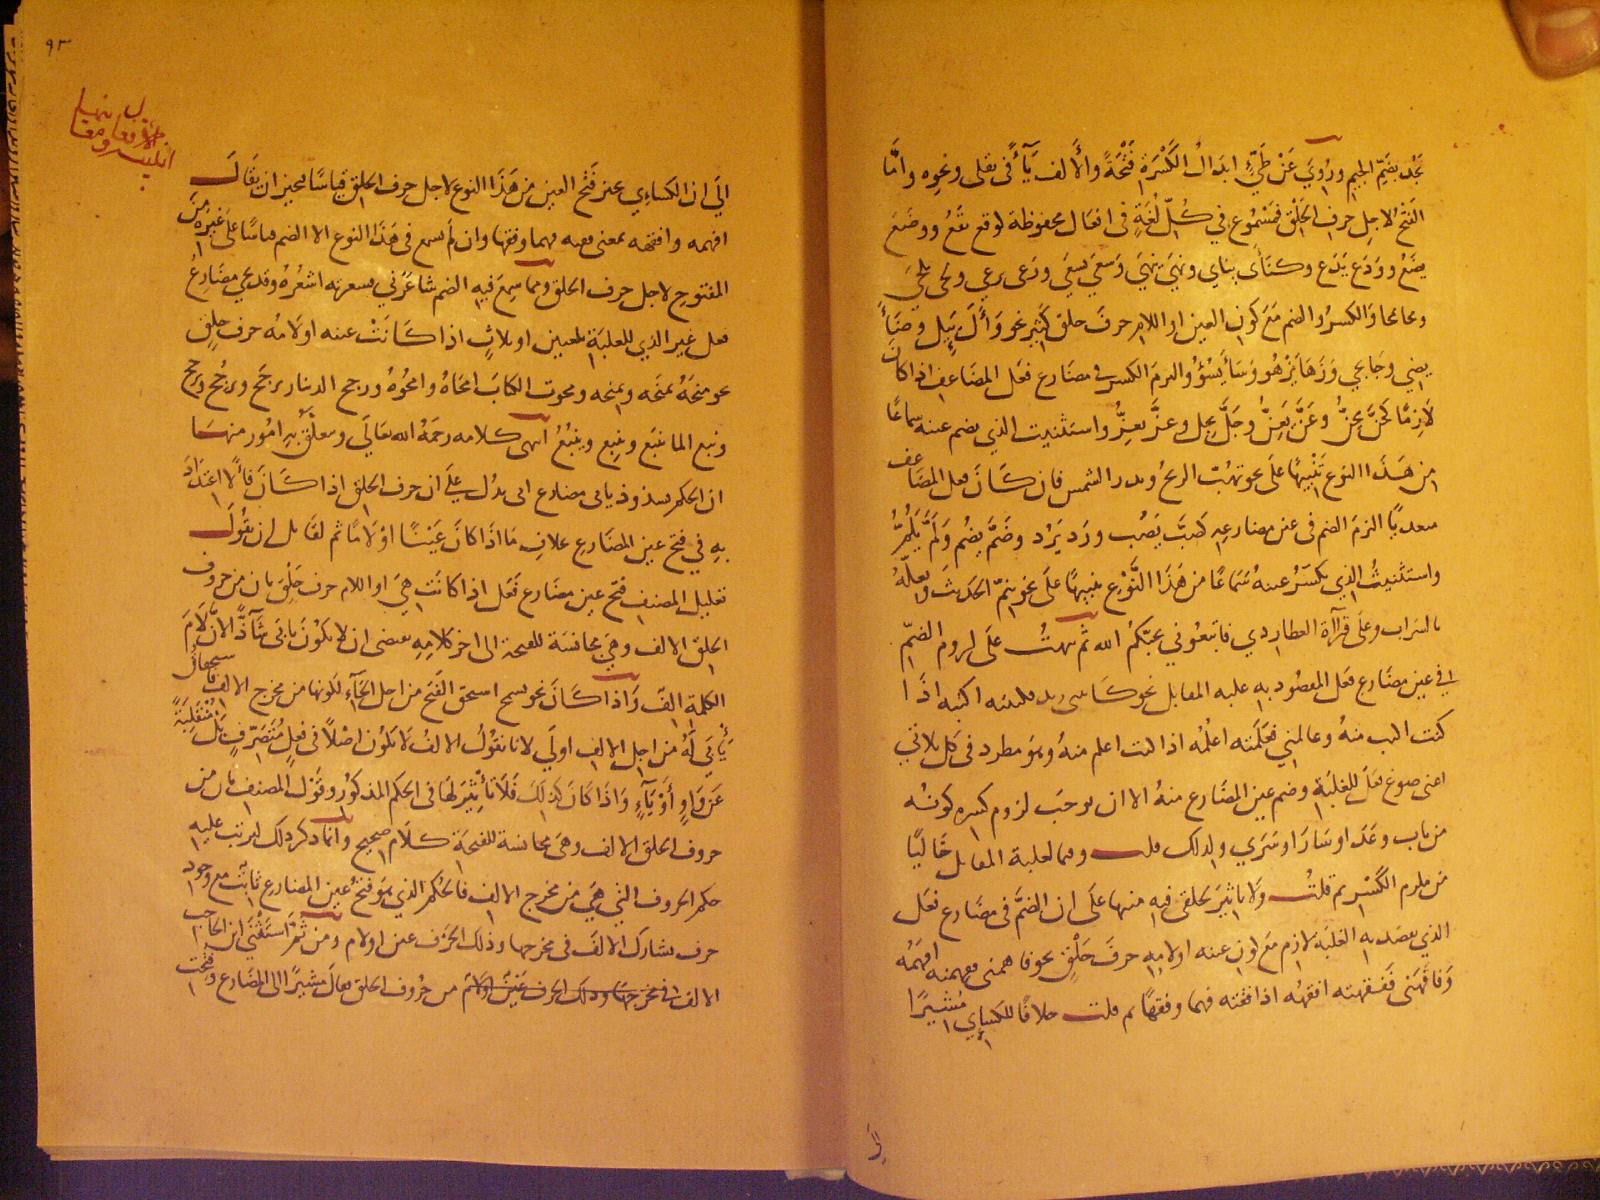 يجد بضم الجيم وروي عن طيئ ابدال الكسرة فتحة والالف ياء في يقلى ونحوه واما
الفتح لاجل حرف الحلق فمسموع في كل لغة في افعال محفوظة لوقع يقع ووضع
يضع وودع يدع وكنأى يناى ونهى ينهى وسعى يسعى ورعى يرعى ولحى يلحى
والكسر والضم مع كون العين او اللام حرف حلق كثير نحو وأل يئل
يضي وجا يجي وزها يزهو وسأ يسؤ والزم الكسر في مضارع فعل المضاعف اذا كان
لازما كحن يحن وعن يعن وجل يجل وعز يعز واستثنيت الذي يضم عنه سماعا
من هذا النوع تنبيها على نحو تهبت الريح وبدر الشمس فان كان فعل المضاعف
معديا الزم الضم في عين مضارعه كصب يصب ورد يرد وضم يضم ولم يلم
واستثنيت الذي يكسر عنه سماعا من هذا النوع تنبيها على نحو ينم الحديث ويعله
بالشراب وعلى قرآة العطاردي فاتبعوني يحبكم الله ثم نبهت على لزوم الضم
في عين مضارع فعل المقصود به غلبه المقابل نحو اذا
كنت منه وعالمني فعلمته اعلمه اذا كنت اعلم منه وهو مطرد في كل ثلاثي
اعني صوغ فعل للغلبة وضم عين المضارع منه الا ان يوجب لزوم كسره كونه
من باب وعد او سار او سري ولذلك قلت وما لغلبة المقابل خاليا
من ملزم الكسر ثم قلت ولا تاثير لحلقي فيه منبها على ان الضم في مضارع فعل
الذي يقصد به الغلبة لازم مع كون عينه او لامه حرف حلق نحو فاهمني ففهمته افهمه
وفاقهني ففقهته افقهه اذا فقته فهما وفقها ثم قلت خلافا للكسايي مشيرا
الى
٩٣
الى ان الكساءي يجيز فتح العين من هذا النوع لاجل حرف الحلق قياسا ليجيز ان يقال
افهمه وافقهه بمعنى فهما وفقها وان لم يسمع في هذا النوع الا الضم قياسا على غيره من
المفتوح لاجل حرف الحلق ومما سمع فيه الضم شاعرني فشعرته اشعره وقد يجي مضارع
فعل غير الذي للغلبة بلغتين او بثلاث اذا كانت عينه او لامه حرف حلق
نحو منحه يمنحه ويمنحه ومحوت الكتاب امحاه وامحوه ورجح الدينار يرجح ويرجح ويرجح
ونبع الما ينبع وينبع وينبع انتهى كلامه رحمه الله تعالى ويتعلق به امور منها
ان الحكم بشذوذ يابى مضارع ابى يدل على ان حرف الحلق اذا كان فاء لا اعتداد
به في فتح عين المضارع بخلاف ما اذا كان عينا او لاما ثم لقايل ان يقول
تعليل المصنف فتح عين مضارع فعل اذا كانت هي او اللام حرف حلق بان من حروف
الحلق الالف وهي مجانسة للفتحة الى اخر كلامه يقتضي ان لا يكون يابى شآذا لان لام
الكلمة الف واذا كان نحو يسم استحق الفتح من اجل الحآء لكونها من مخرج الالف فاستحقاق
يأبى له من اجل الالف اولى لانا نقول الالف لا تكون اصلا في فعل متصرف بل منقلبة
عن واو او يآء واذا كان كذلك فلا تأثير لها في الحكم المذكور وقول المصنف بان من
حروف الحلق الالف وهي مجانسة للفتحة كلام صحيح وانما ذكر ذلك ليرتب عليه
حكم الحروف التي هي من مخرج الالف فالحكم الذي هو فتح عين المضارع ثابت مع وجود
حرف يشارك الالف في مخرجها وذلك الحرف عين او لام ومن ثم استثنى ابن الحاجب
الالف في مخرجها وذلك الحرف عين او لام من حروف الحلق فقال مشيرا الى المضارع وفتحت